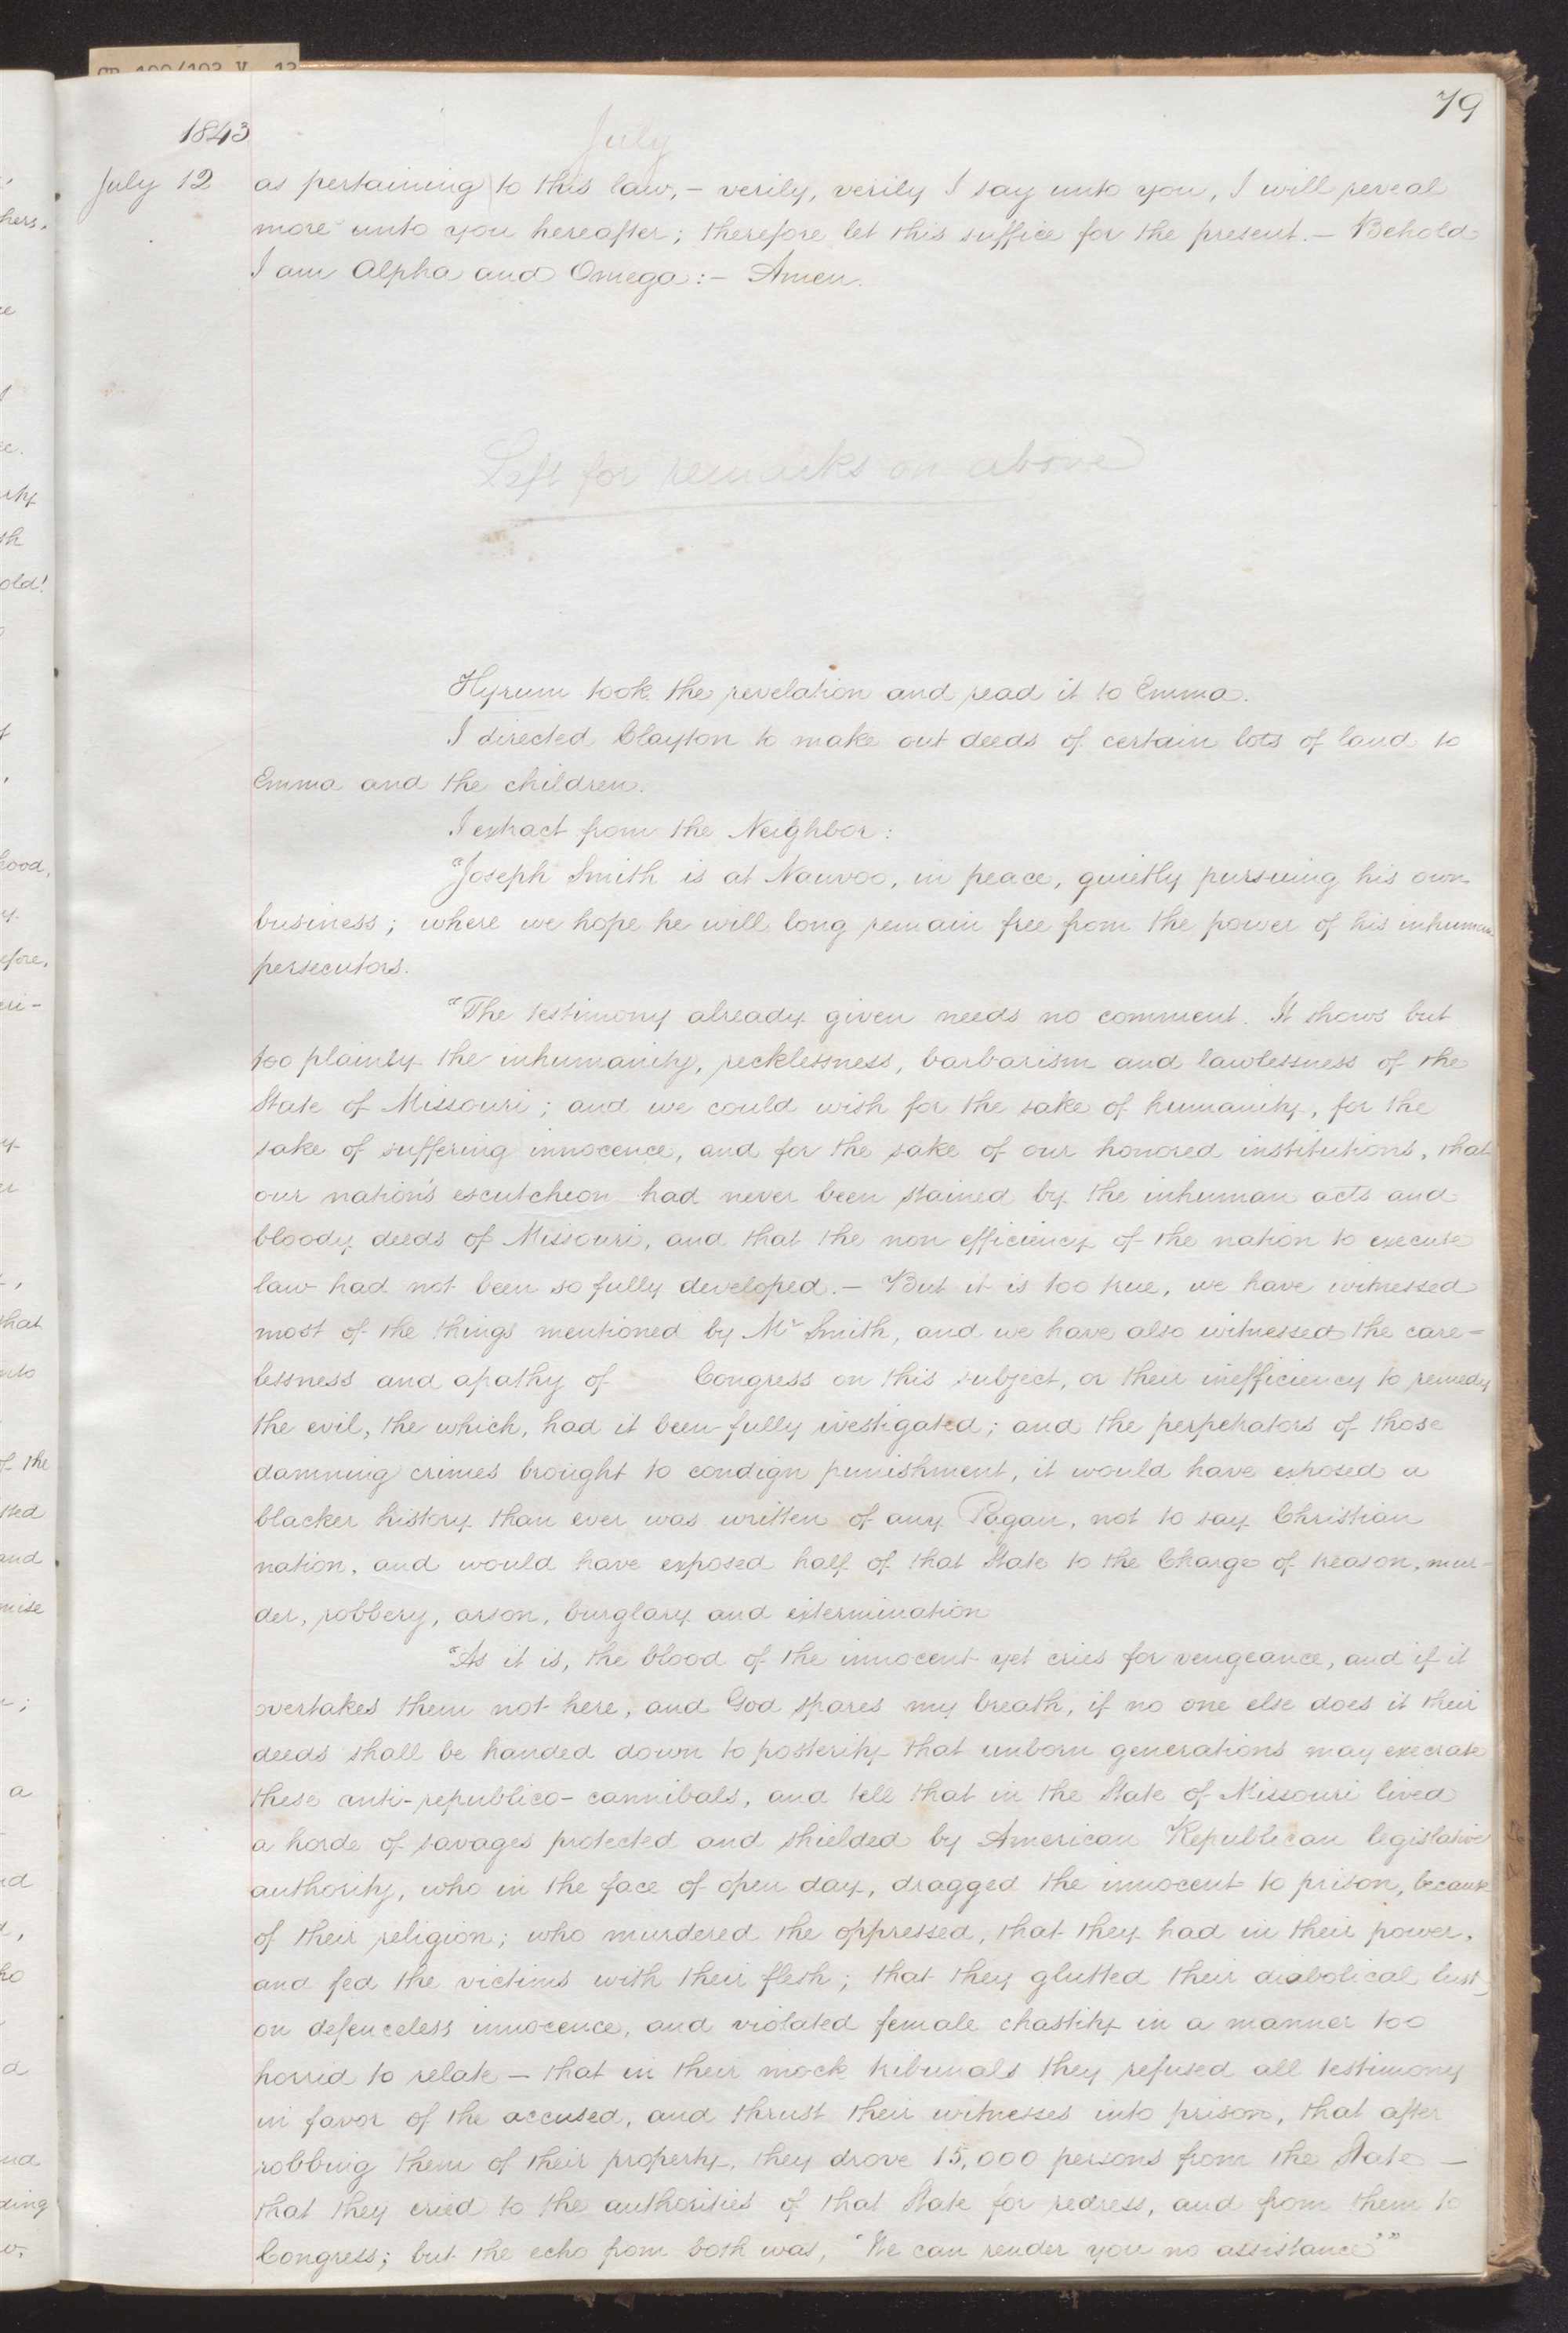 79
1843
July
July 12 as pertaining to this law, – verily, verily I say unto you, I will reveal
more unto you hereafter; therefore let this suffice for the present. – Behold
I am Alpha and Omega: – Amen.
Left for remarks on above
Hyrum took the revelation and read it to Emma.
I directed Clayton to make out deeds of certain lots of land to
Emma and the children.
I extract from the Neighbor:
"Joseph Smith is at Nauvoo, in peace, quietly pursuing his own
business; where we hope he will long remain free from the power of his inhuman
persecutors.
"The testimony already given needs no comment. It shows but
too plainly the inhumanity, recklessness, barbarism and lawlessness of the
State of Missouri; and we could wish for the sake of humanity, for the
sake of suffering innocence, and for the sake of our honored institutions, that
our nation's escutcheon had never been stained by the inhuman acts and
bloody deeds of Missouri, and that the non efficiency of the nation to execute
law had not been so fully developed. – But it is too true, we have witnessed
most of the things mentioned by Mr Smith, and we have also witnessed the care-
lessness and apathy of Congress on this subject, or their inefficiency to remedy
the evil, the which, had it been fully ivestigated; and the perpetrators of those
damning crimes brought to condign punishment, it would have exposed a
blacker history than ever was written of any Pagan, not to say Christian
nation, and would have exposed half of that State to the Charge of treason, mur-
der, robbery, arson, burglary and extermination
"As it is, the blood of the innocent yet cries for vengeance, and if it
overtakes them not here, and God spares my breath, if no one else does it their
deeds shall be handed down to posterity that unborn generations may execrate
these anti-republico-cannibals, and tell that in the State of Missouri lived
a horde of savages protected and shielded by American Republican legislative
authority, who in the face of open day, dragged the innocent to prison, because
of their religion; who murdered the oppressed, that they had in their power,
and fed the victims with their flesh; that they glutted their diabolical lust,
on defenceless innocence, and violated female chastity in a manner too
horrid to relate – that in their mock tribunals they refused all testimony
in favor of the accused, and thrust their witnesses into prison, that after
robbing them of their property, they drove 15,000 persons from the State –
that they cried to the authorities of that State for redress, and from them to
Congress; but the echo from both was, 'We can render you no assistance'"